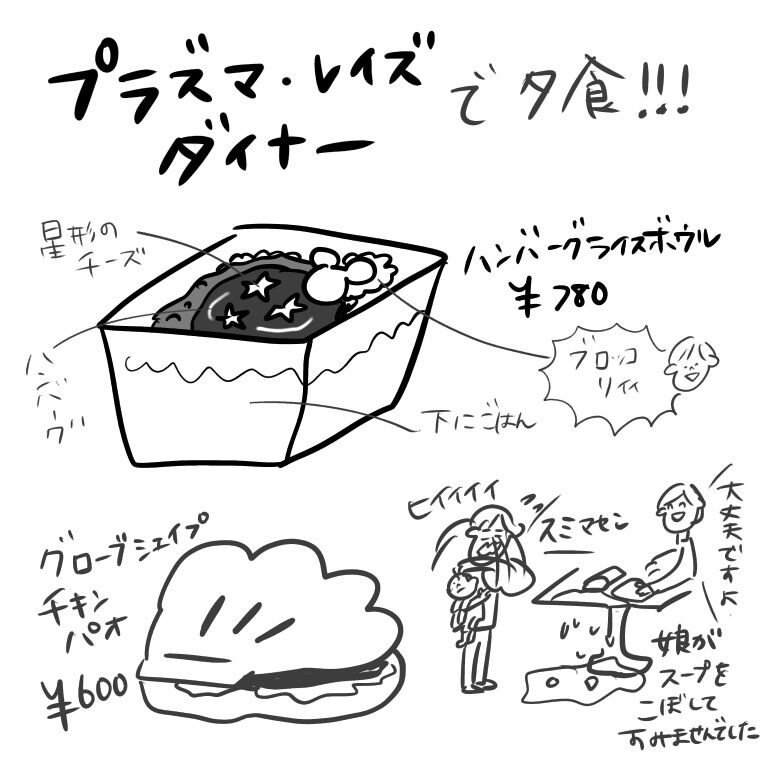 プラズマ・レイズ
ダイナー
で夕食!!!
星形の
チーズ
ハンバーグライスボウル
¥780
ハンバーグ
ブロッコ
リィィ
下にごはん
グローブシェイプ
チキン
パオ
¥600
ヒイイイイ
スミマセン
大丈夫ですよ
娘が
スープを
こぼして
すみませんでした